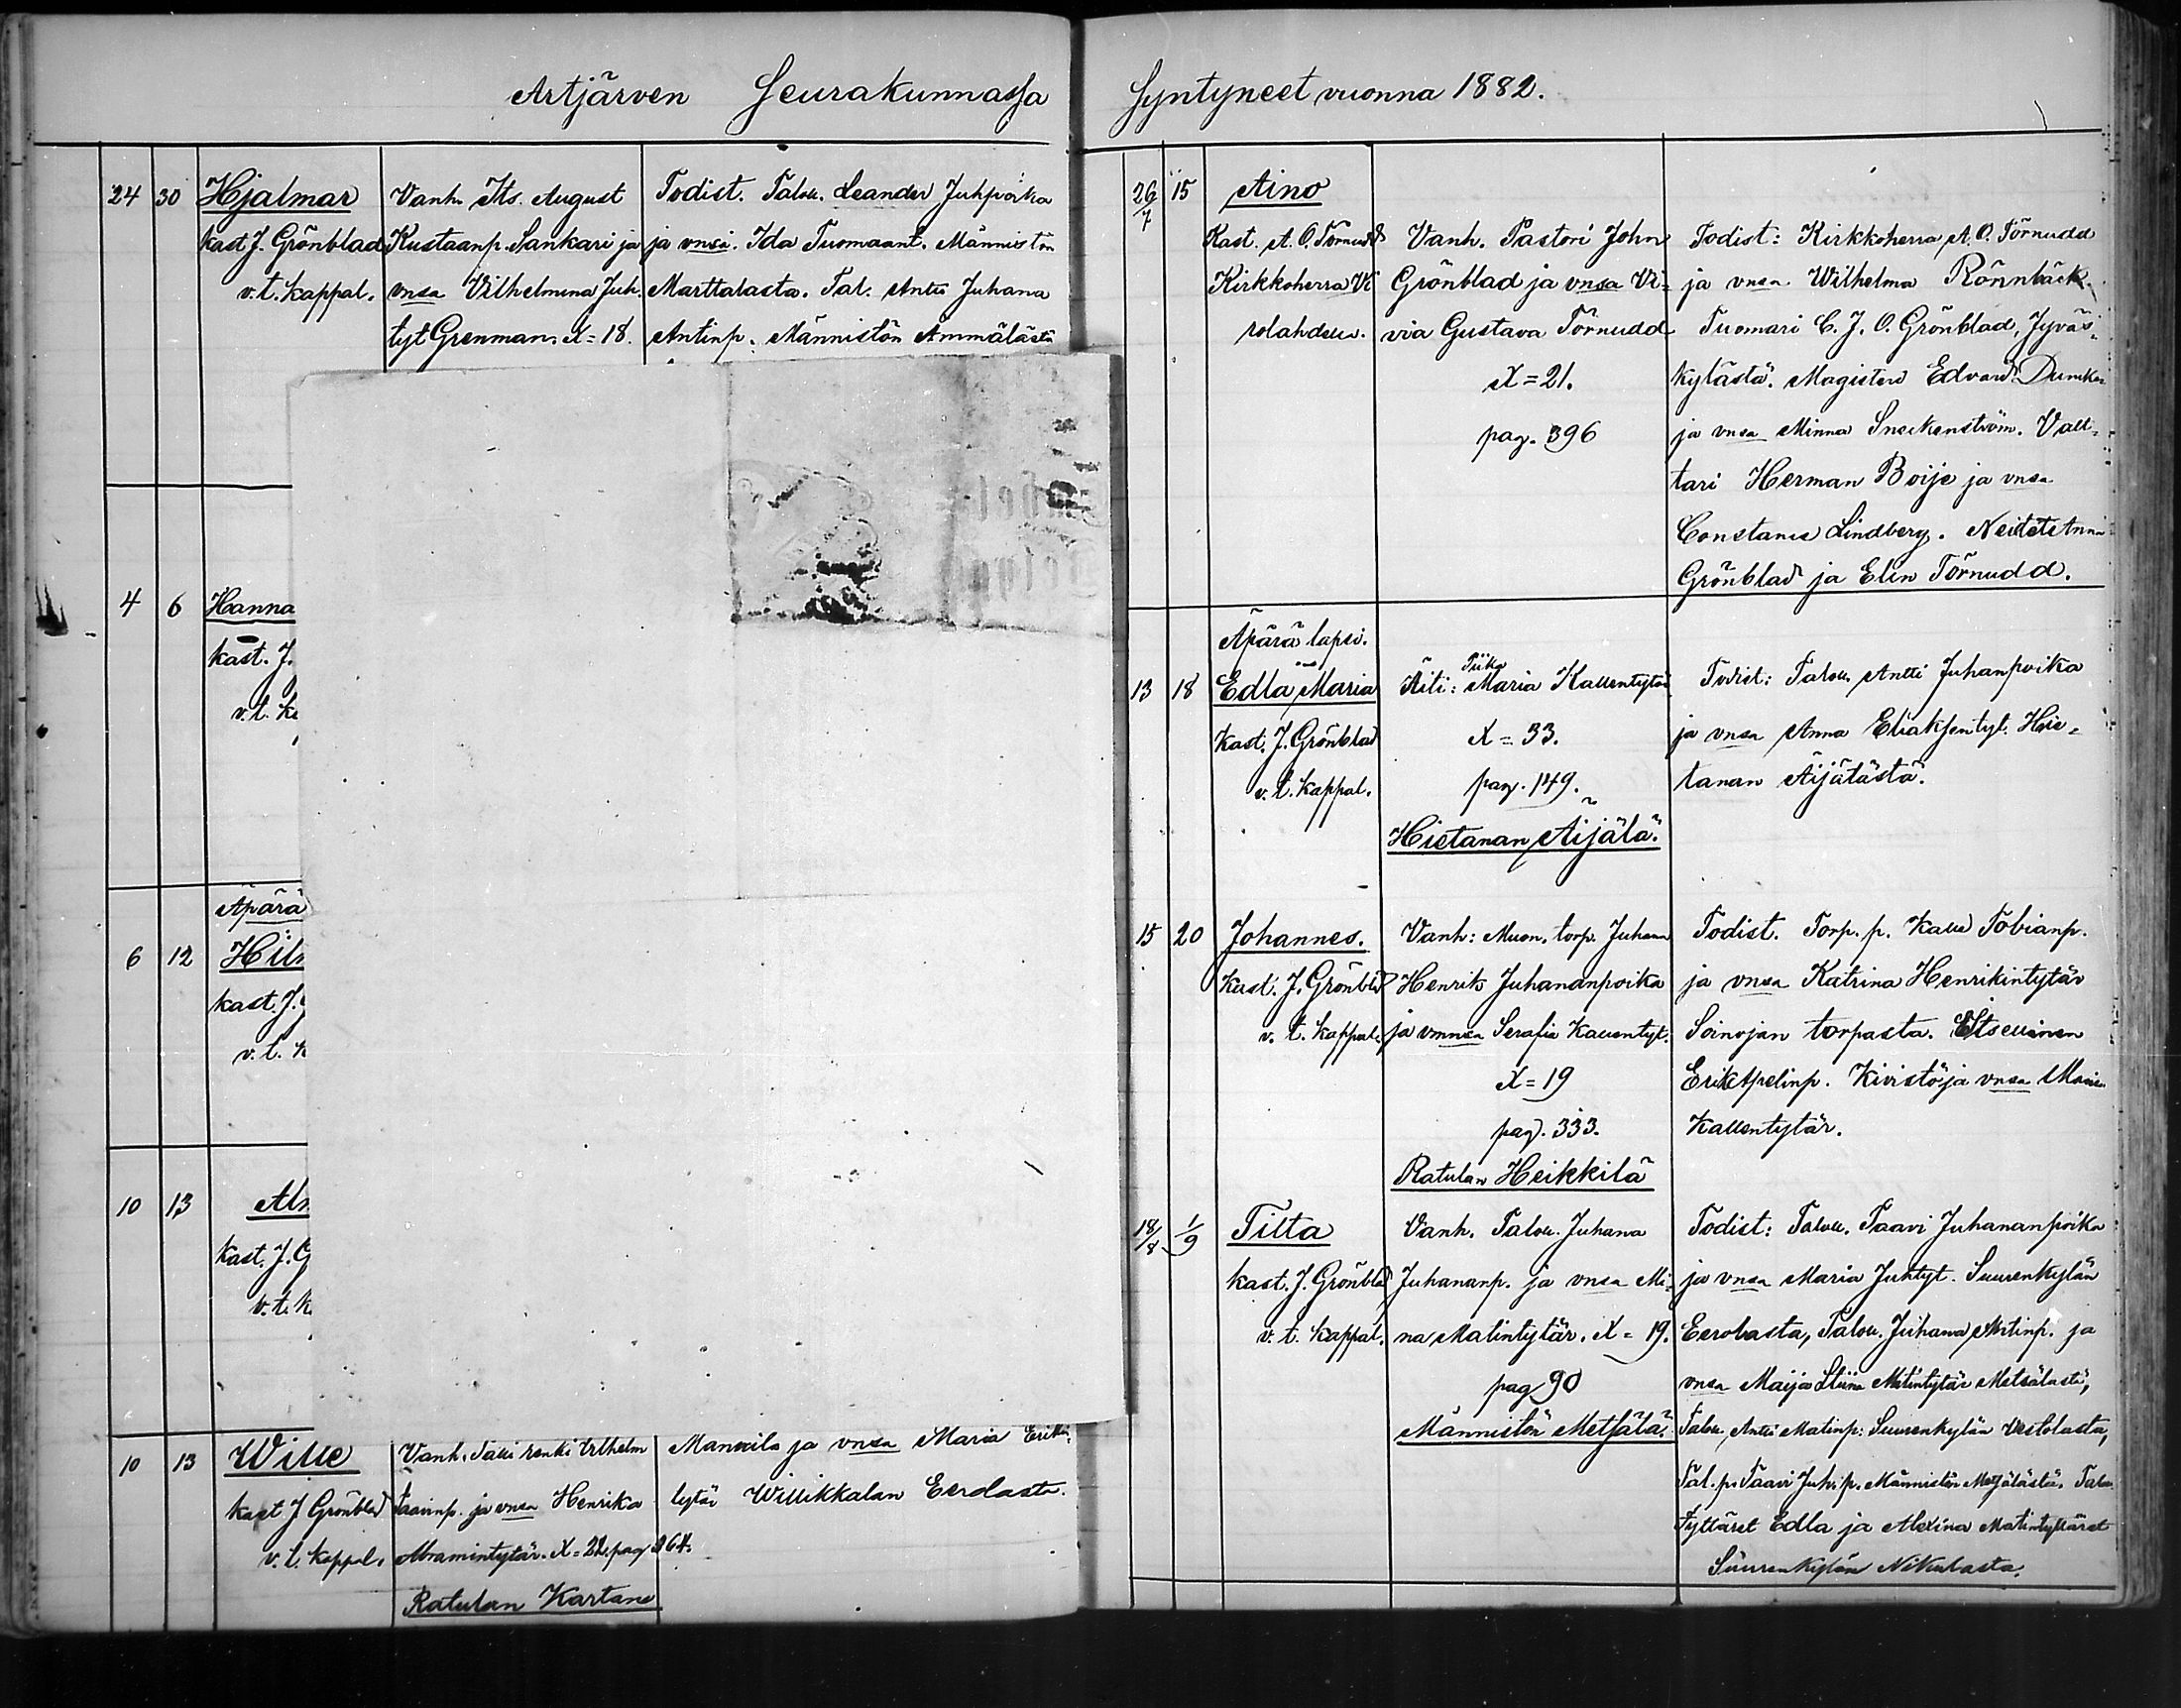 Artjärven Seurakunnassa
24 30 Hjalmar
kast J. Grönblad
v.t. kappal.
Vanh. Its. August
Kustaanp. Sankari ja
vnsa Vilhelmina Juh.
tyt Grenman. X = 18.
Todist. Taloll. Leander Juhpoika
ja vnsa. Ida Tuomaant. Männistön
Marttalasta. Tal. Antti Juhana
Antinp. Männistön Ammälästä
4 6 Hanna
kast. J.
v.t. k
Äpärä
6 12
kast. J.
v.t. k
10 13
kast. J. G
v.t. k
10 13 Wille
kast J Grönblad
v.t. kappal.
Vanh. Talli renki Vilhelm
Taavinp. ja vnsa Henrika
Abramintytär. X = 22. pag 364.
Ratulan Kartano
Mannila ja vnsa Maria Erikin
tytär Willikkalan Eerolasta.
Syntyneet vuonna 1882.
26/7 15 Aino
Kast. A. O. Törnudd
Kirkkoherra Vi
rolahdelta.
Vanh. Pastori John
Grönblad ja vnsa Vi-
via Gustava Törnudd
X = 21.
pag. 396
Todist: Kirkkoherra A. O. Törnudd
ja vnsa Wilhelma Rönnbäck.
Tuomari C. J. O. Grönblad, Jyväs-
kylästä. Magisteri Edvard
ja vnsa Minna Sneckenström. Valt-
tari Herman Boije ja vnsa
Constance Lindberg. Neidet Anna
Grönblad ja Elin Törnudd.
Äpärä lapsi.
13 18 Edla Maria
Kast. J. Grönblad
v.t. kappal.
Piika
Äiti: Maria Kallentytär
X = 33.
pag. 149.
Hietanan Äijälä.
Todist: Taloll. Antti Juhanpoika
ja vnsa Anna Eliaksentyt. Hie-
tanan Äijälästä.
15 20 Johannes.
Kast. J. Grönblad
v. t. kappal.
Vanh: Muon. torp. Juhana
Henrik Juhananpoika
ja vmnsa Serafia Kallentyt.
X = 19
pag. 333.
Ratulan Heikkilä
Todist. Torp. p. Kalle Tobianp.
ja vnsa Katrina Henrikintytär
Soinojan torpasta. Itsellinen
Erik Apelinp. Kivistö ja vnsa Maria
Kallentytär.
18/8 1/9 Tilta
kast. J. Grönblad
v. t. kappal.
Vanh. Taloll. Juhana
Juhananp. ja vnsa Mi-
na Matintytär. X = 19.
pag 90
Männistön Metsälä.
Todist: Taloll. Taavi Juhananpoika
ja vnsa Maria Juhtyt. Suurenkylän
Eerolasta, Taloll. Juhana Antinp. ja
vnsa Maija Stiina Matintytär Metsälästä,
Taloll. Antti Matinp: Suurenkylän Uestolasta,
Tal. p. Taavi Juh. p. Männistön Metsälästä. Talon
Tyttäret Edla ja Alexina Matintyttäret
Suurenkylän Nikulasta.